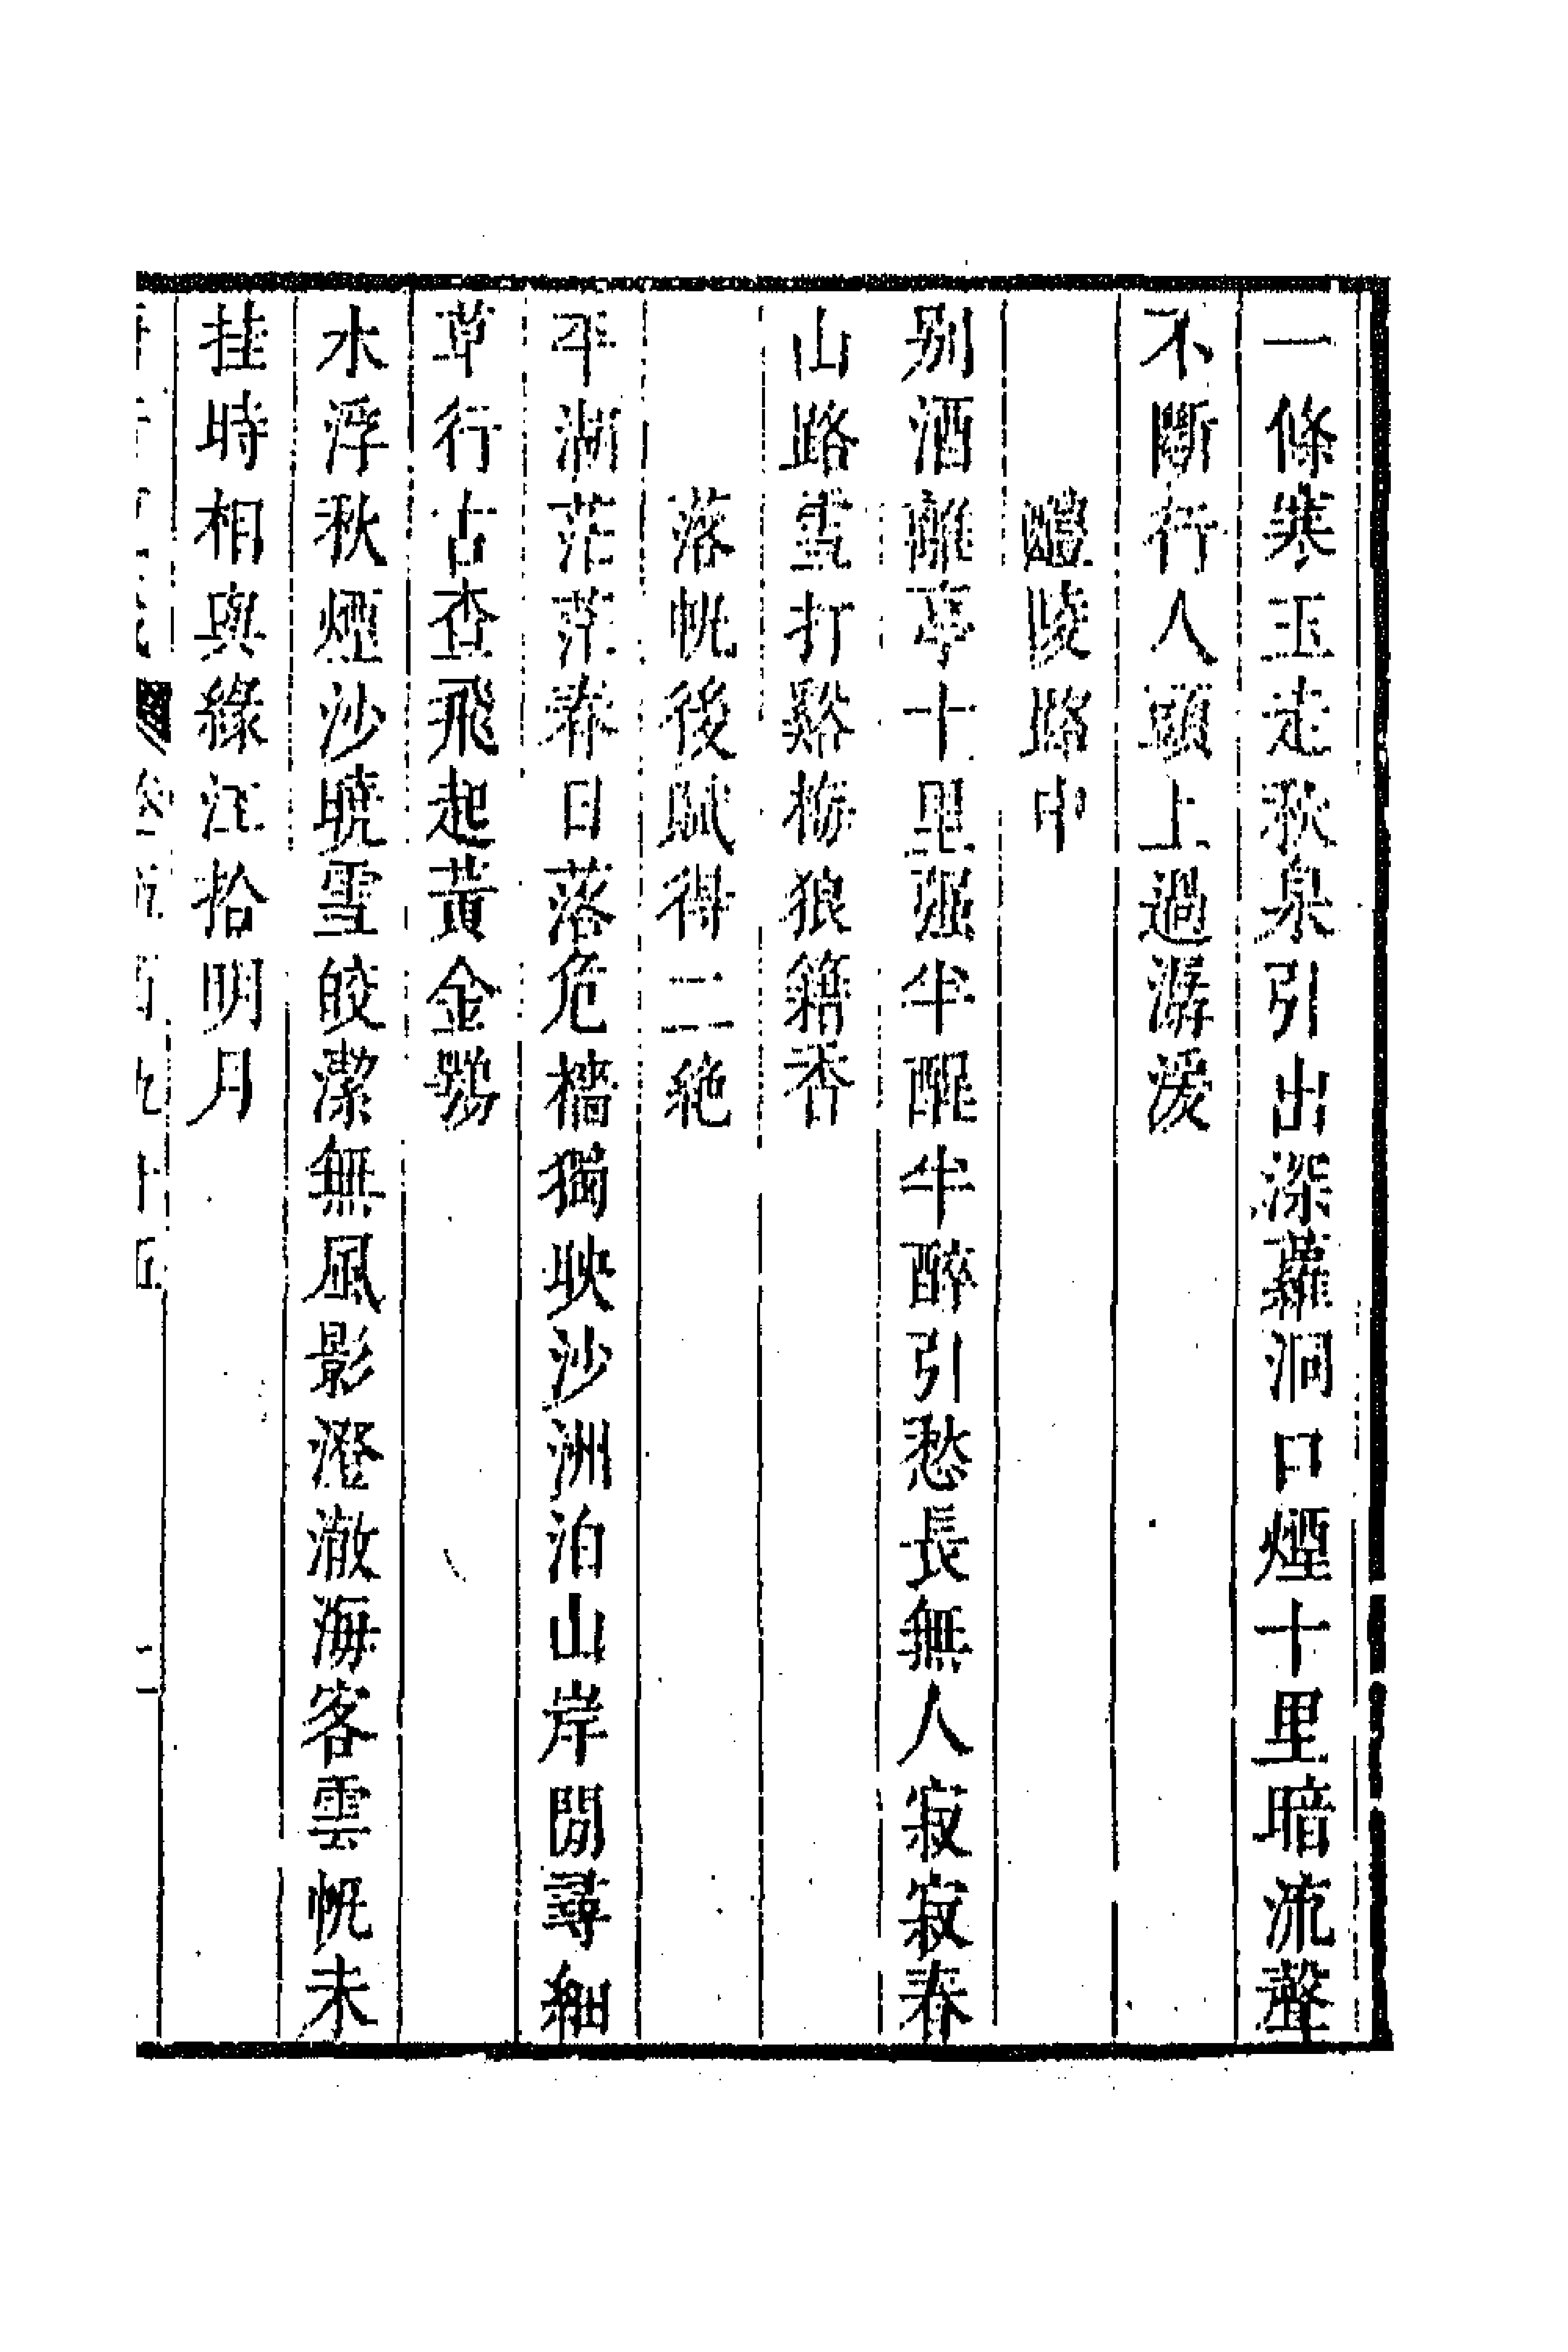 一條寒玉走秋泉引出深蘿洞口煙十里暗流聲
不斷行人頭上過潺湲
醴陵路中
别酒離亭十里强半醒半醉引愁長無人寂寂春
山路雪打谿梅狼籍香
落帆後賦得二絶
平湖茫茫春日落危檣獨映沙洲泊山岸閒尋細
草行古查飛起黃金鶚
水浮秋煙沙曉雪皎潔無風影澄澈海客雲帆未
挂時相與緣江拾明月